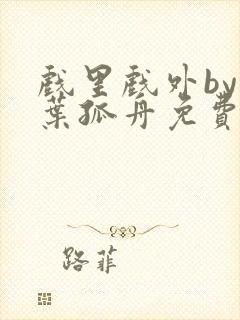 戲里戲外by
葉孤舟免費
路菲